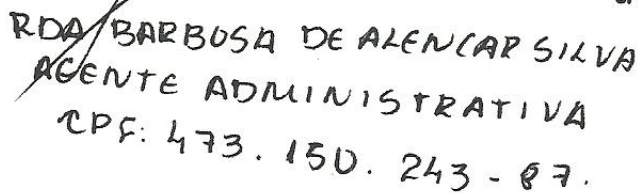 RDA BARBOSA DE ALENCAR SILVA
AGENTE ADMINISTRATIVA
CPF: 473.150.243-87.